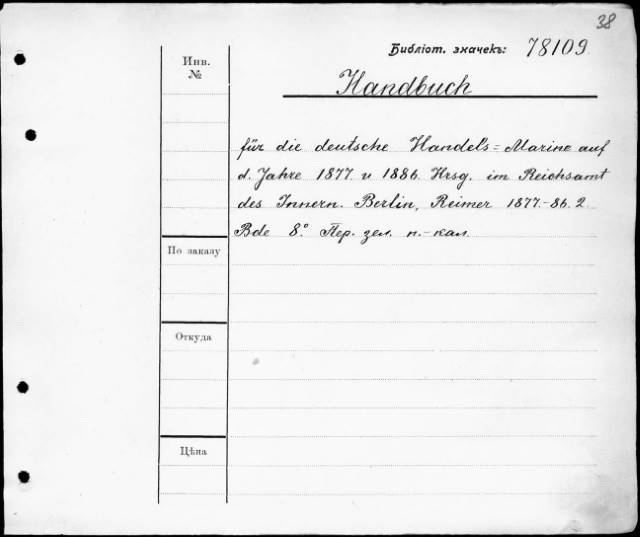 38
Библіот. значекъ: 78109.
Инв.
№
Handbuch
für die deutsche Handels=Marine auf
d. Jahre 1877. u 1886. Hrsg. im Reichsamt
des Innern. Berlin, Reimer 1877.-86. 2.
Bde 8.° Пер. зел. п.-кал.
По заказу
Откуда
Цѣна